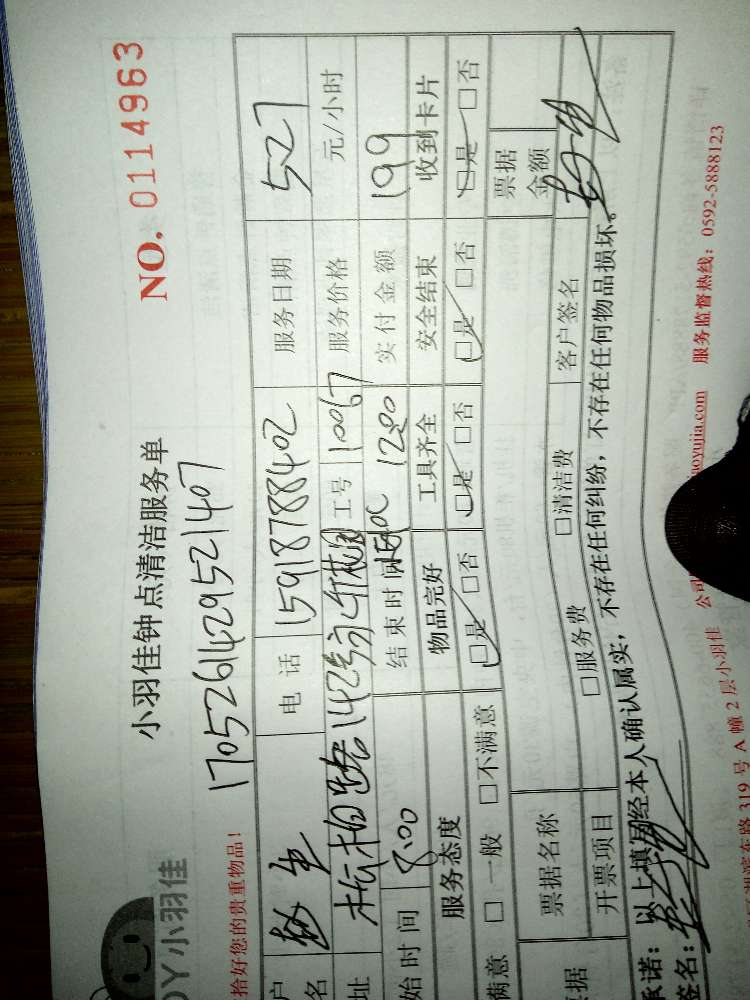 小羽佳钟点清洁服务单
NO. 0114963
OY小羽佳
1705261429521407
拾好您的贵重物品！
户 电 话 15918788402 服务日期 5.27
名
址 142号 工号 10067 服务价格 元/小时
始时间 8:00 结束时间 12:00 实付金额 199
服务态度 物品完好 工具齐全 安全结束 收到卡片
满意 □ 一般 □不满意 □是 □否 □是 □否 □是 □否 □是 □否
据 票据名称 票据金额
开票项目 □服务费 □清洁费 客户签名
承诺：以上填写经本人确认属实，不存在任何纠纷，不存在任何物品损坏。
签名：
319 号 A 幢 2 层小羽佳 aoyujia.com 服务监督热线：0592-5888123